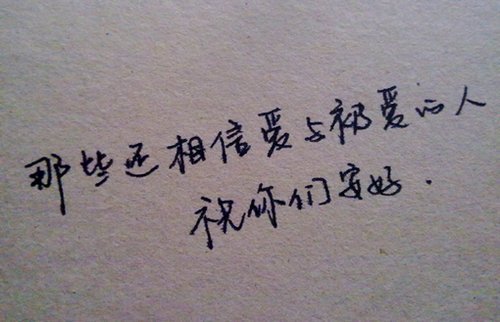 那些还相信爱与被爱的人
祝你们安好.